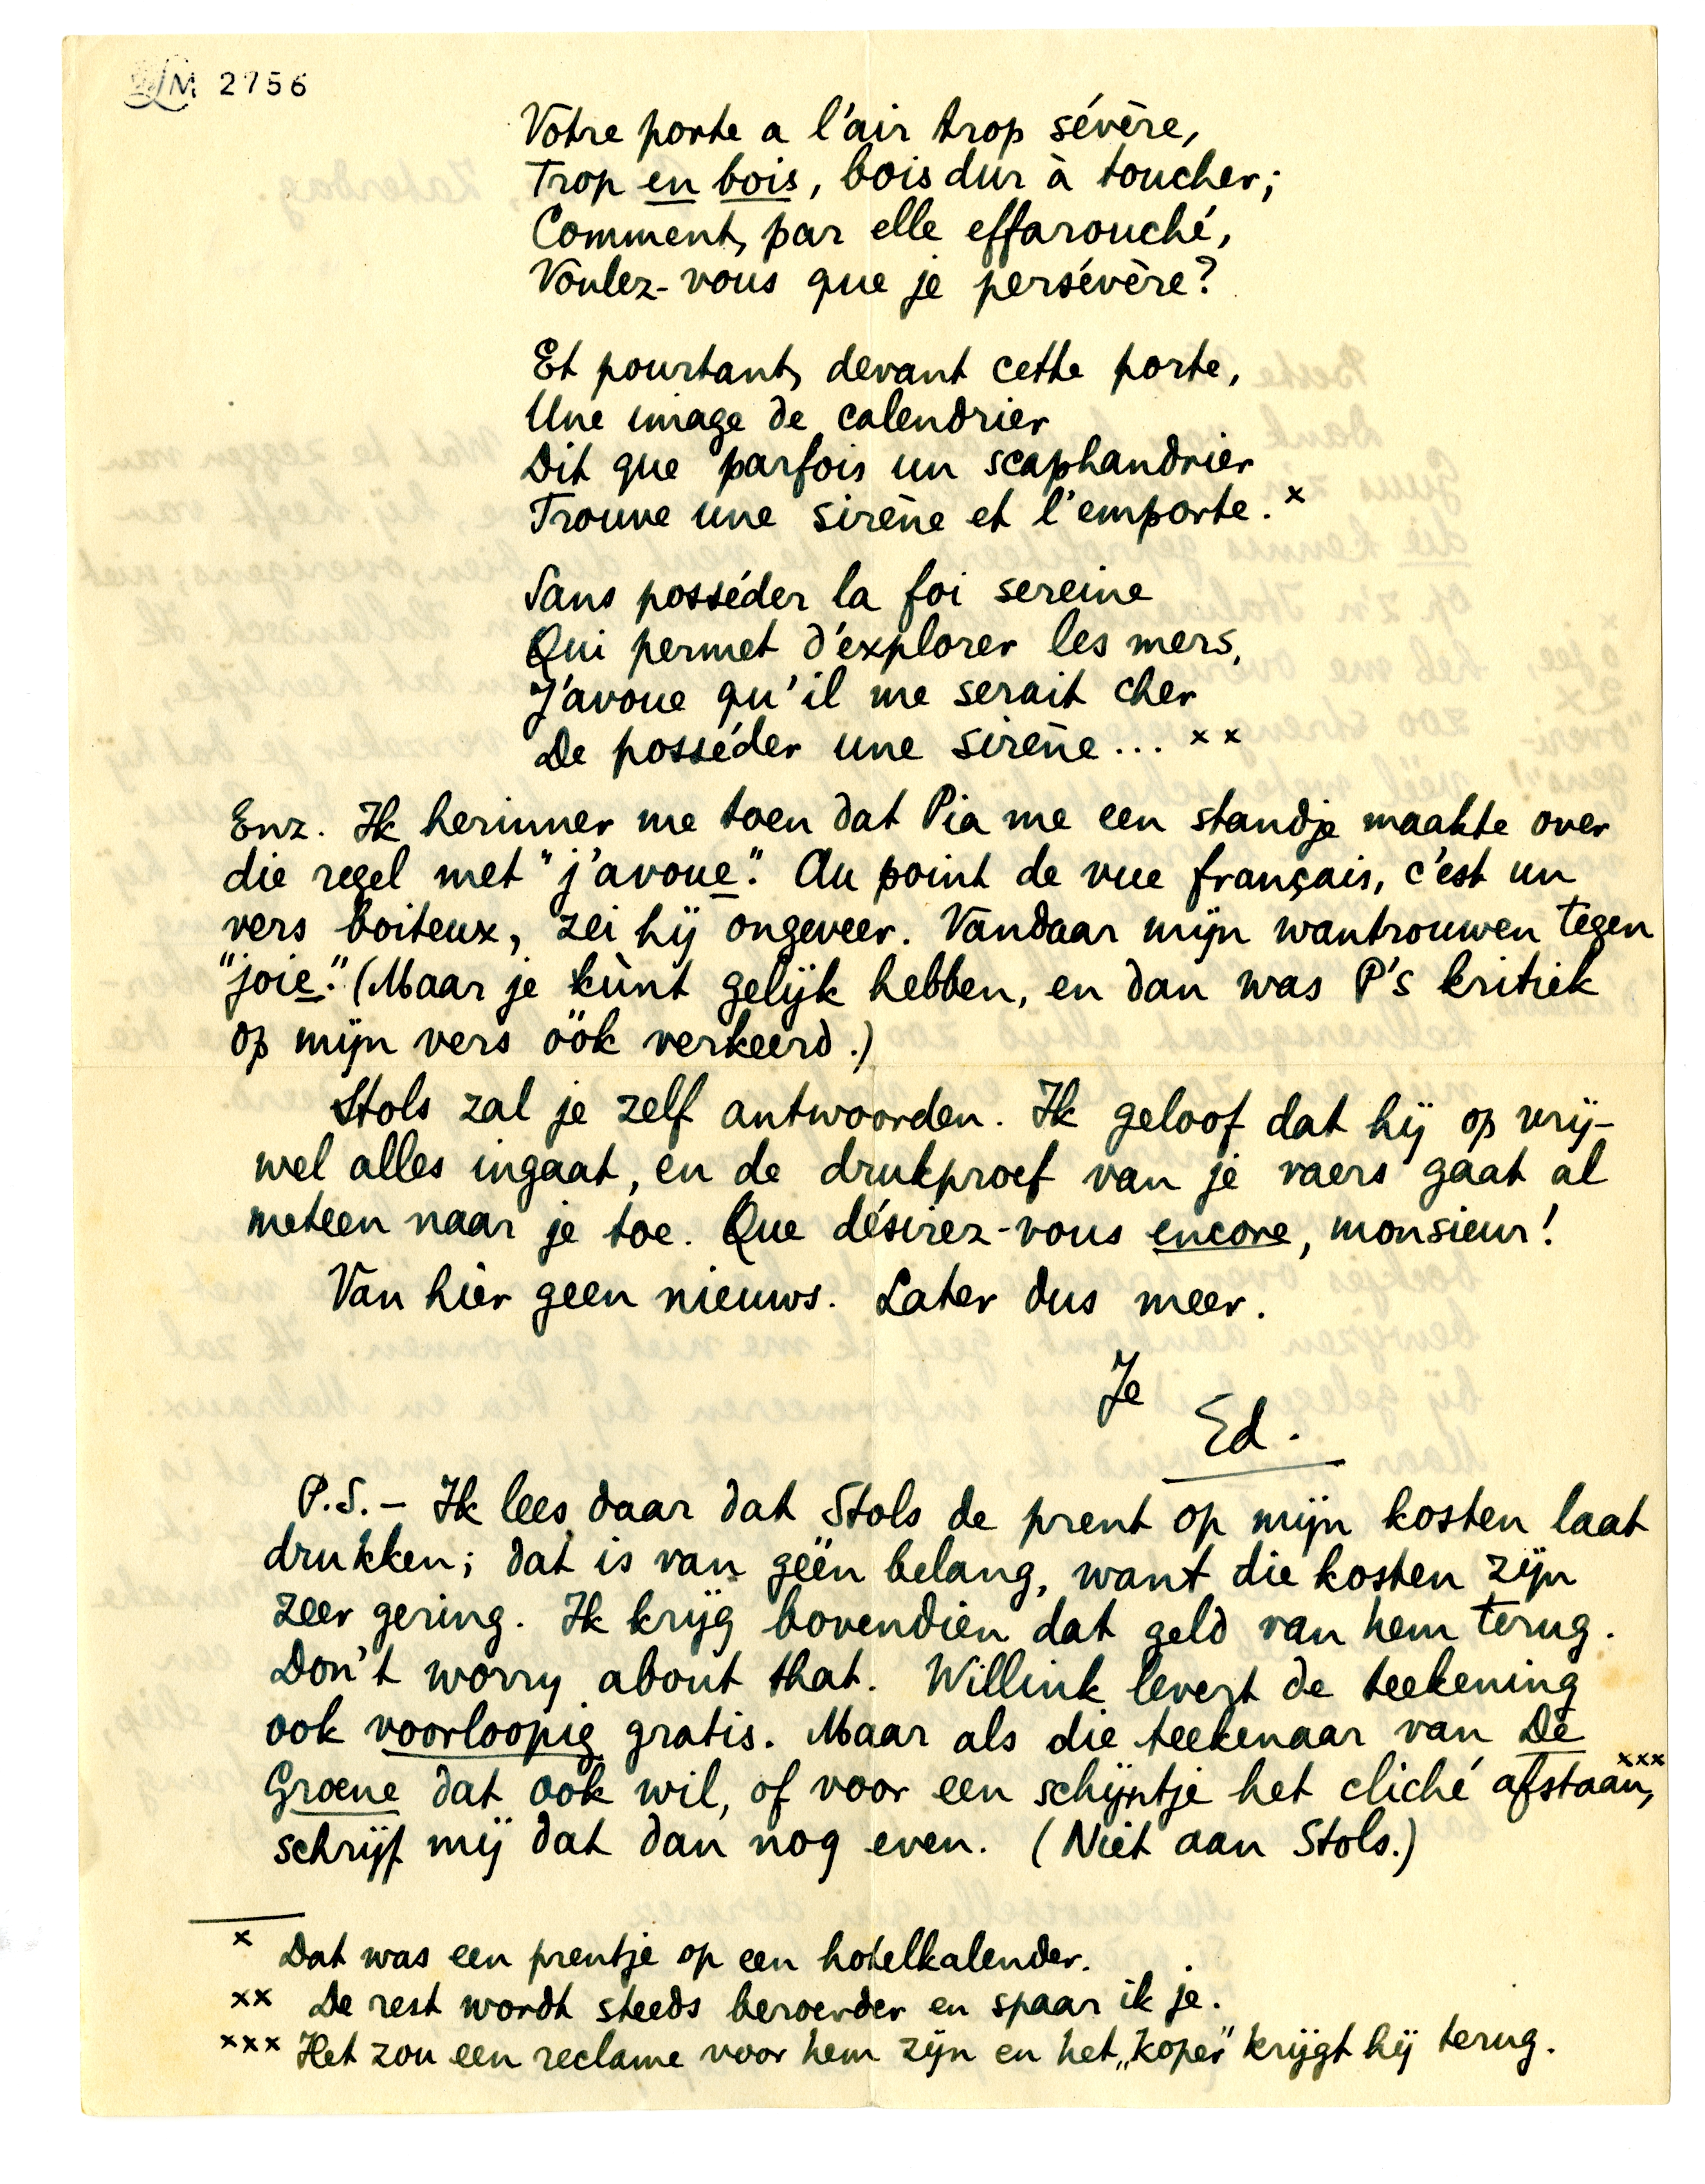 LM 2756
Votre porte a l'air trop sévère,
Trop en bois, bois dur à toucher;
Comment, par elle effarouché,
Voulez-vous que je persévère?
Et pourtant, devant cette porte,
Une image de calendrier
Dit que parfois un scaphandrier
Trouve une sirène et l'emporte. x
Sans posséder la foi sereine
Qui permet d'explorer les mers,
J'avoue qu'il me serait cher
De posséder une sirène... x x
Enz. Ik herinner me toen dat Pia me een standje maakte over
die regel met "j'avoue." Au point de vue français, c'est un
vers boiteux, zei hij ongeveer. Vandaar mijn wantrouwen tegen
"joie." (Maar je kùnt gelijk hebben, en dan was P's kritiek
op mijn vers óók verkeerd.)
Stols zal je zelf antwoorden. Ik geloof dat hij op vrij-
wel alles ingaat, en de drukproef van je vaers gaat al
meteen naar je toe. Que désirez-vous encore, monsieur!
Van hier geen nieuws. Later dus meer.
Je
Ed.
P.S. – Ik lees daar dat Stols de prent op mijn kosten laat
drukken; dat is van géén belang, want die kosten zijn
zeer gering. Ik krijg bovendien dat geld van hem terug.
Don't worry about that. Willink levert de teekening
ook voorloopig gratis. Maar als die teekenaar van De
Groene dat ook wil, of voor een schijntje het cliché afstaan, xxx
schrijf mij dat dan nog even. (Niet aan Stols.)
x Dat was een prentje op een hotelkalender.
xx De rest wordt steeds beroerder en spaar ik je.
xxx Het zou een reclame voor hem zijn en het „koper" krijgt hij terug.